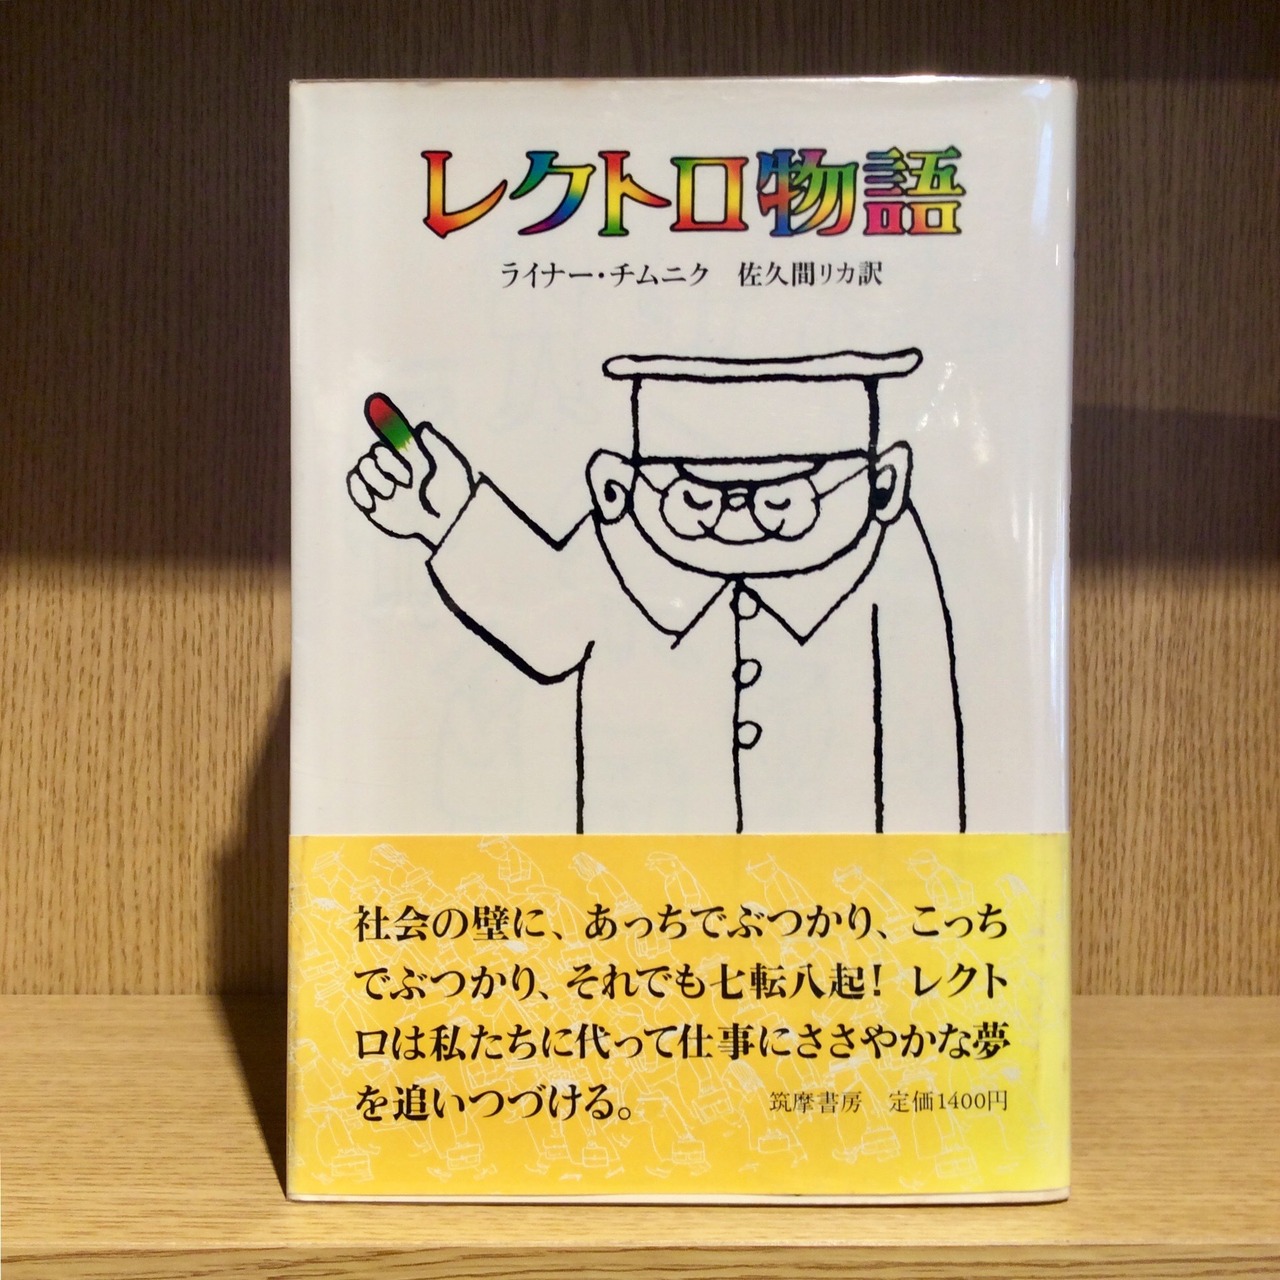 レクトロ物語
ライナー・チムニク 佐久間リカ訳
社会の壁に、あっちでぶつかり、こっち
でぶつかり、それでも七転八起! レクト
ロは私たちに代って仕事にささやかな夢
を追いつづける。
筑摩書房 定価1400円